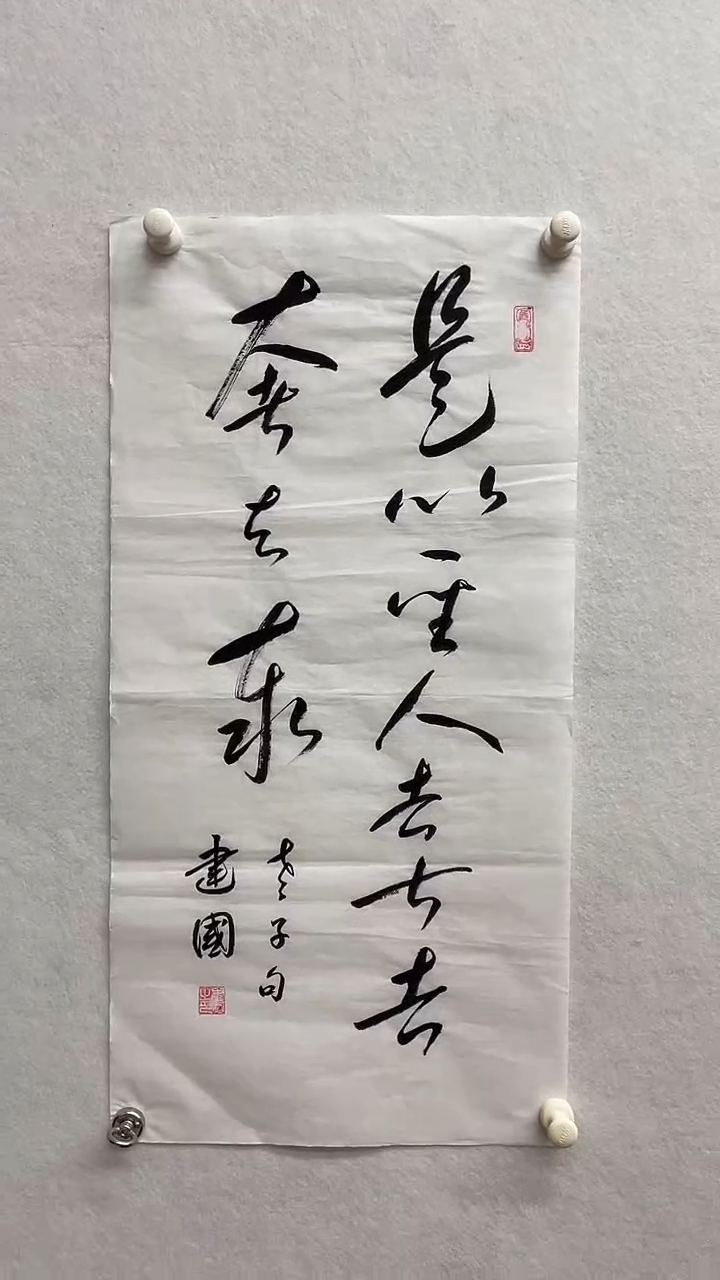 是以聖人去甚去
奢去泰
老子句
建國